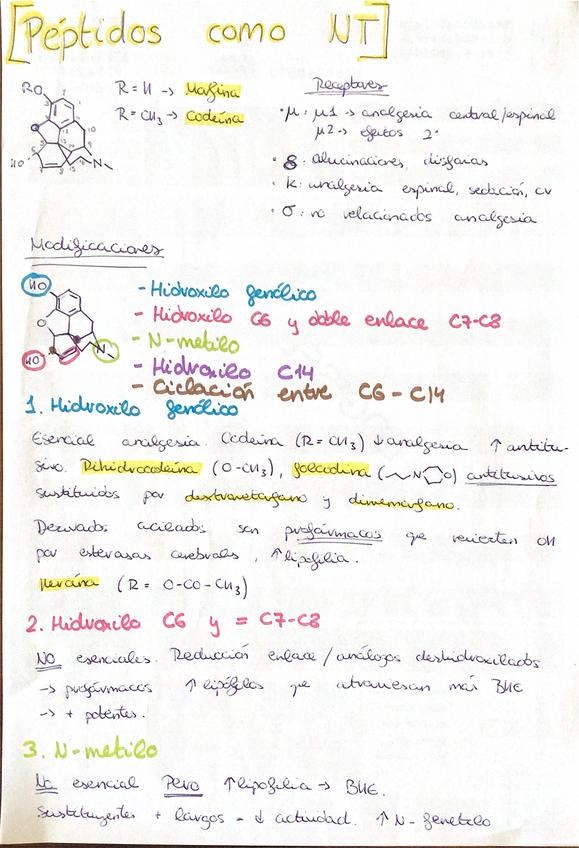 [Péptidos como NT]
RO
R = H -> Morfina
R = CH3 -> Codeína
Receptores
• μ: μ1 -> analgesia central/espinal
μ2 -> efectos 2º
• δ: Alucinaciones, disforias
• K: analgesia espinal, sedación, cv
• σ: no relacionados analgesia
HO
N
Modificaciones
HO
O
N
HO
- Hidroxilo fenólico
- Hidroxilo C6 y doble enlace C7-C8
- N-metilo
- Hidroxilo C14
- Ciclación entre C6 - C14
1. Hidroxilo fenólico
Esencial analgesia. Codeína (R = CH3) ↓analgesia ↑ antitu-
sivo. Dihidrocodeína (O-CH3), folcodina (N O) antitusivos
sustituidos por dextrometorfano y dimemorfano.
Derivados acilados son profármacos que revierten OH
por esterasas cerebrales, ↑lipofilia.
Heroína (R = O-CO-CH3)
2. Hidroxilo C6 y = C7-C8
NO esenciales. Reducción enlace/análogos deshidroxilados
-> profármacos ↑lipófilos que atraviesan más BHE
-> + potentes.
3. N-metilo
No esencial Pero ↑lipofilia -> BHE.
Sustituyentes + largos = ↓ actividad. ↑ N-fenetilo